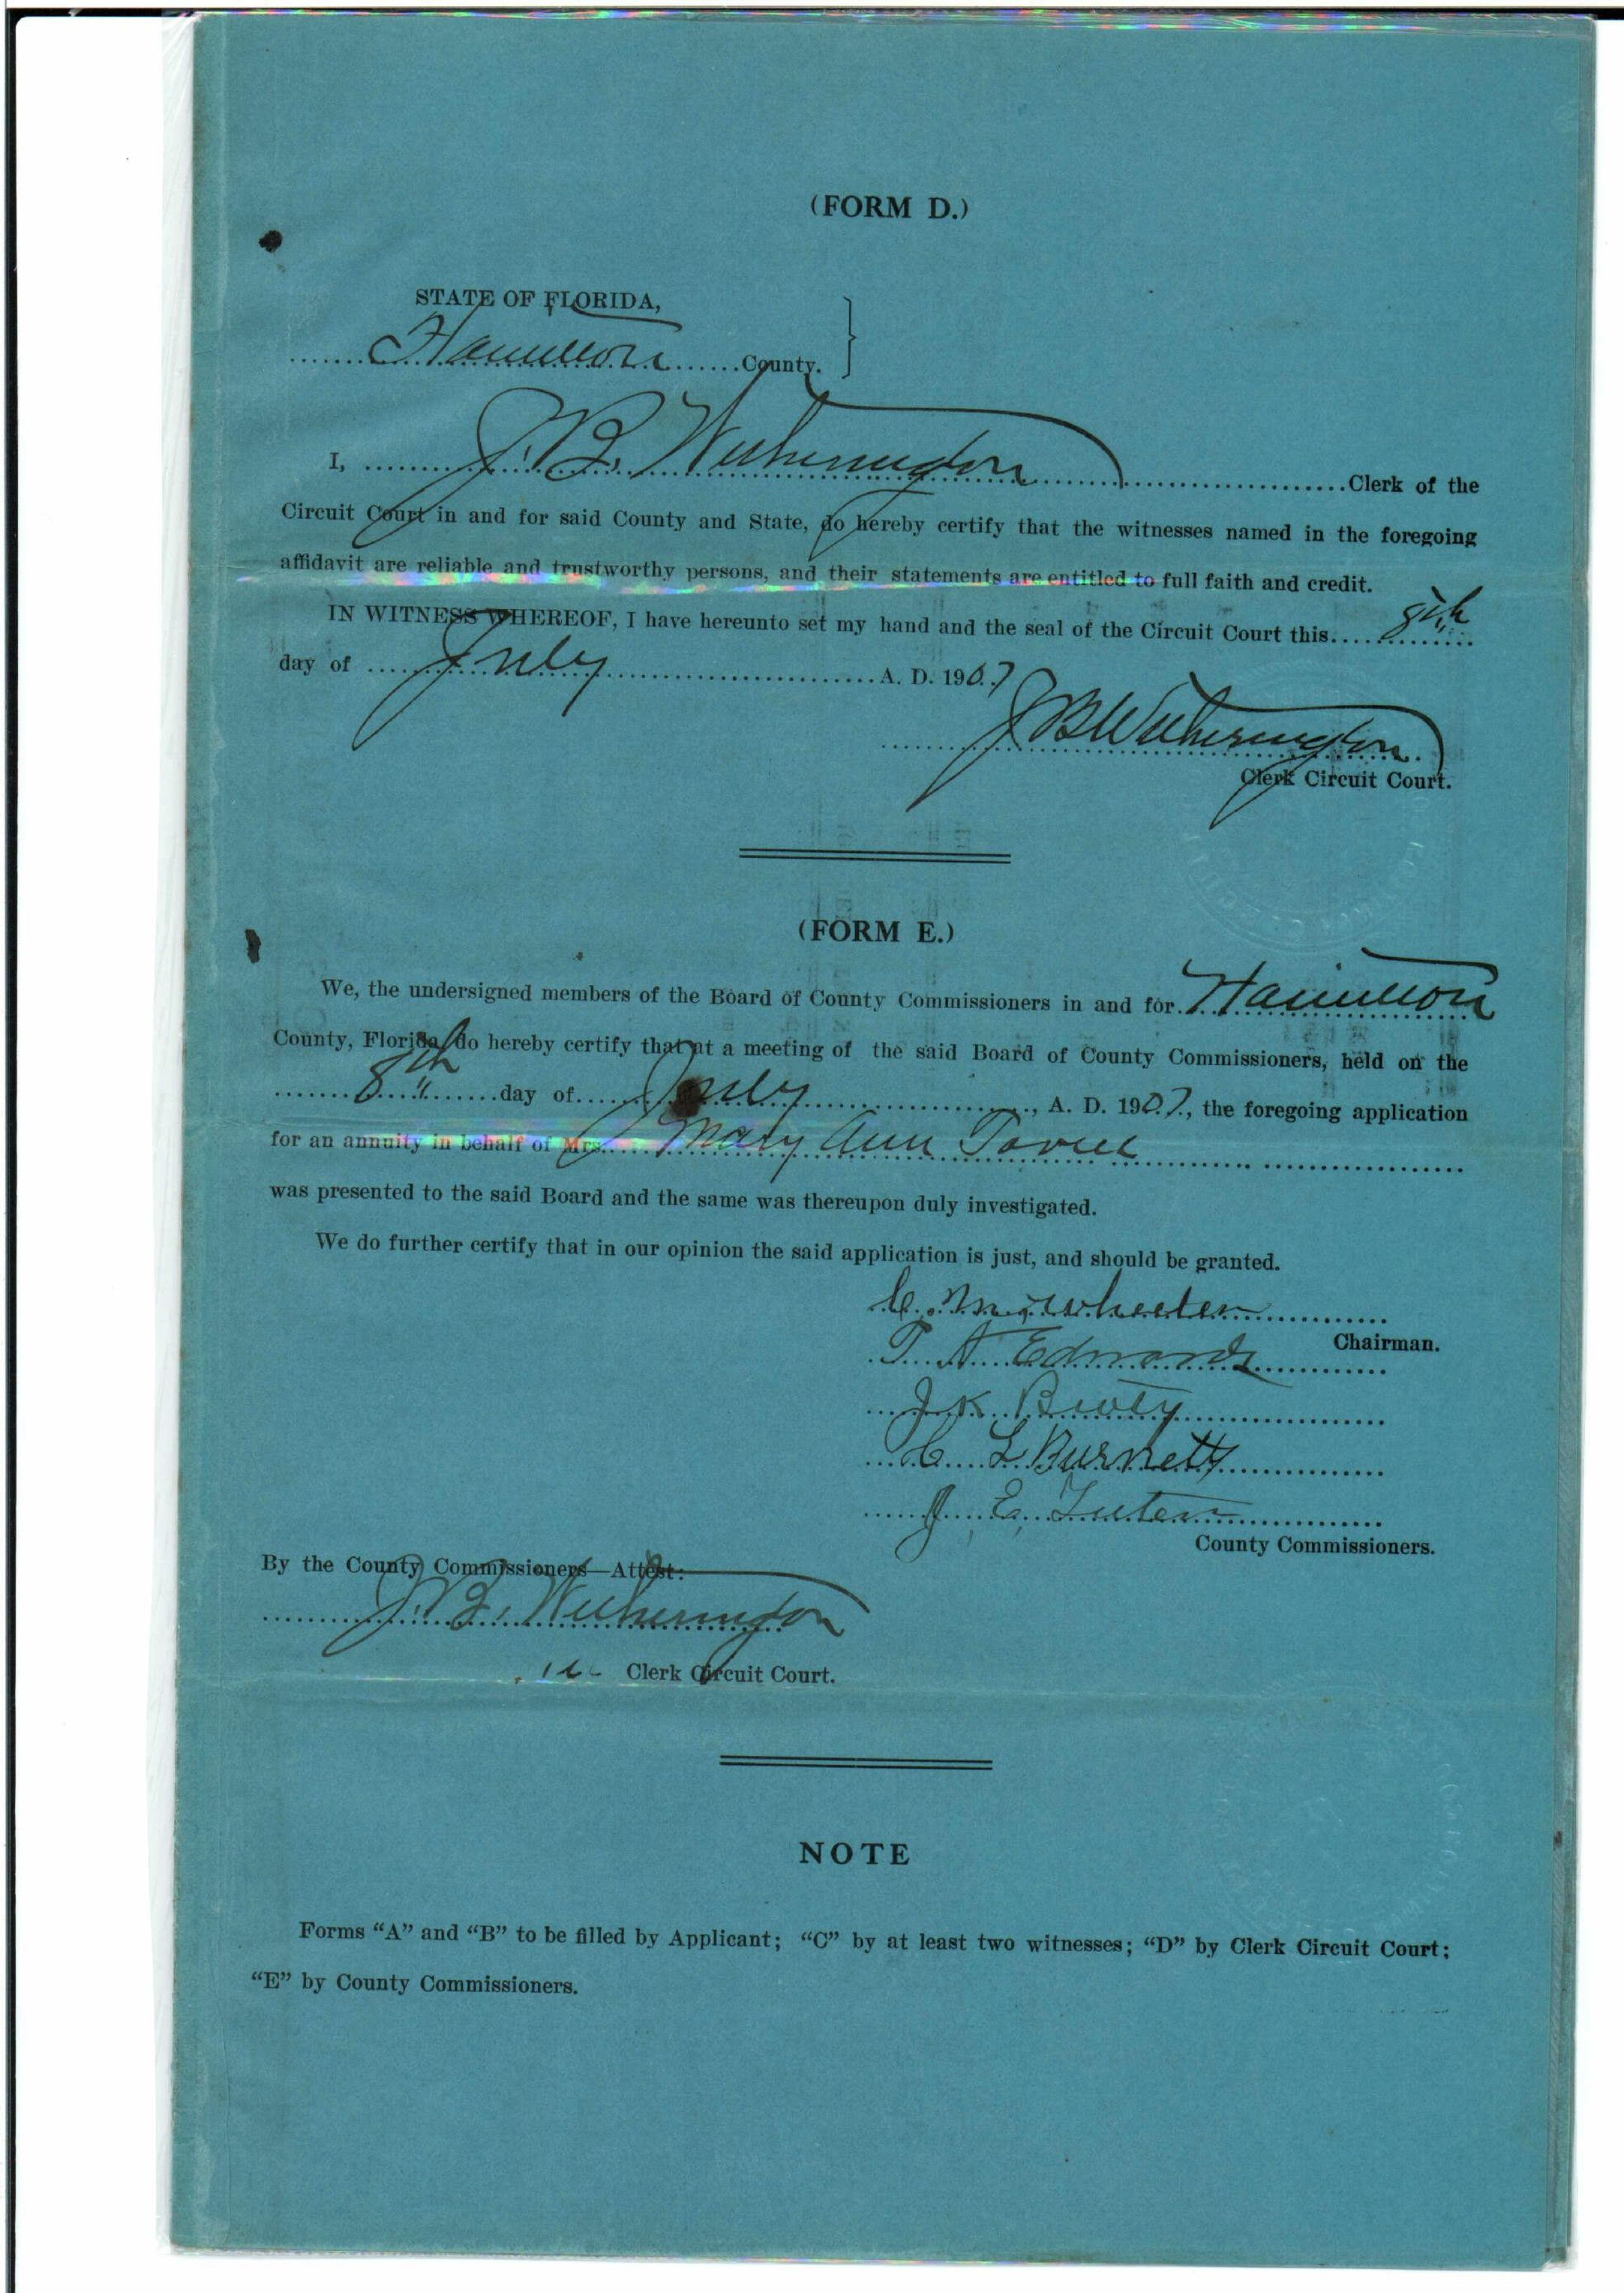 (FORM D.)
STATE OF FLORIDA,
Hamilton County.
I, J. B. Witherington Clerk of the
Circuit Court in and for said County and State, do hereby certify that the witnesses named in the foregoing
affidavit are reliable and trustworthy persons, and their statements are entitled to full faith and credit.
IN WITNESS WHEREOF, I have hereunto set my hand and the seal of the Circuit Court this 8th
day of July A. D. 1907
J B Witherington
Clerk Circuit Court.
(FORM E.)
We, the undersigned members of the Board of County Commissioners in and for Hamilton
County, Florida, do hereby certify that at a meeting of the said Board of County Commissioners, held on the
8th day of July, A. D. 1907, the foregoing application
for an annuity in behalf of Mrs. Mary Ann
was presented to the said Board and the same was thereupon duly investigated.
We do further certify that in our opinion the said application is just, and should be granted.
C. M. Wheeler
Chairman.
Edwards
J K
C L Burnett
J. E. Tuten
County Commissioners.
By the County Commissioners—Attest:
J. B. Witherington
Clerk Circuit Court.
NOTE
Forms “A” and “B” to be filled by Applicant; “C” by at least two witnesses; “D” by Clerk Circuit Court;
“E” by County Commissioners.